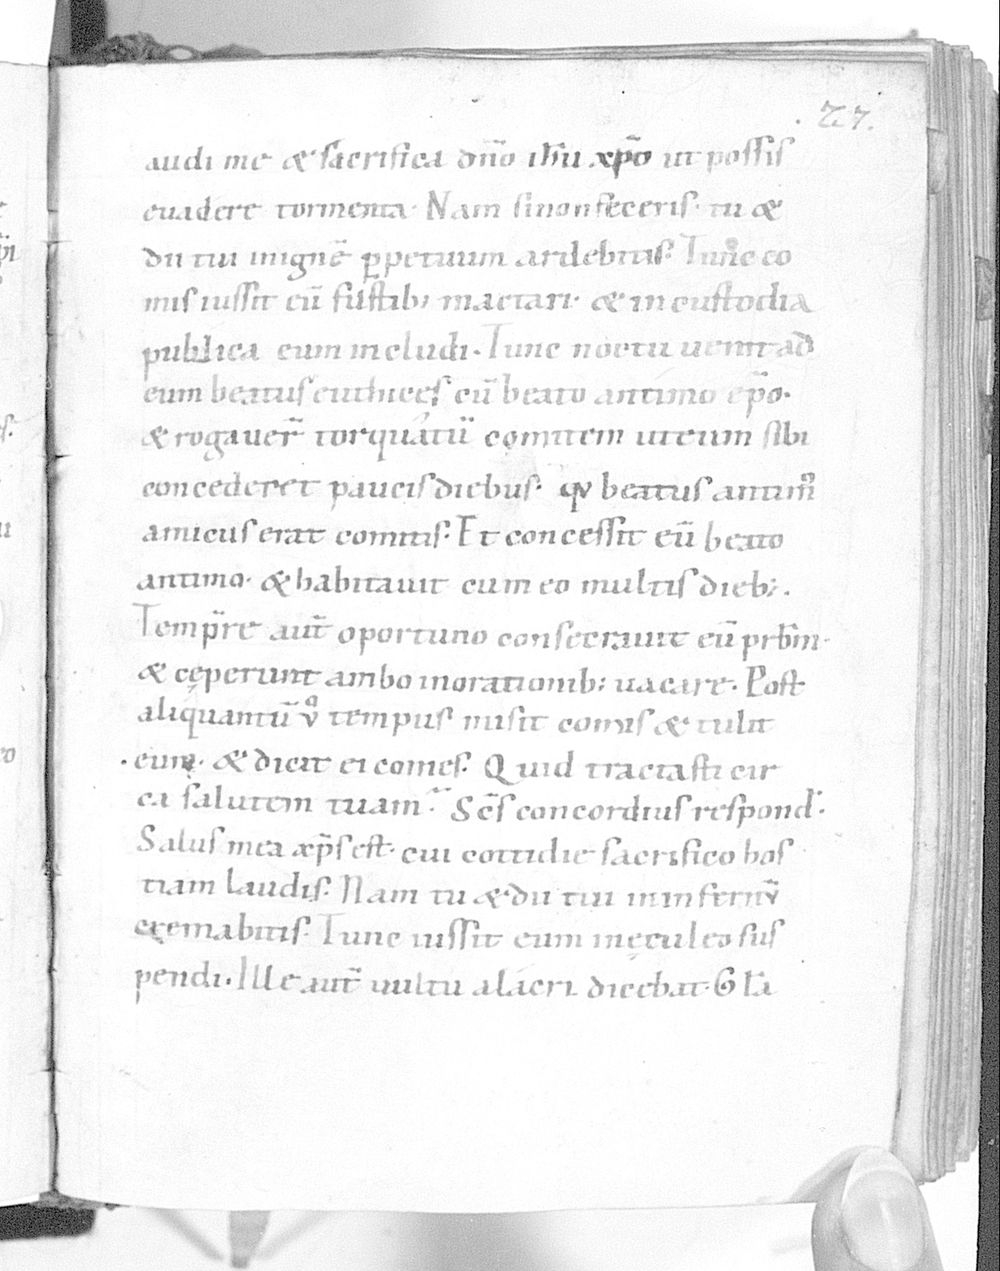 27.
audi me & sacrifica dn̄o ih̄u xp̄o ut possis
euadere tormenta. Nam sinonfeceris. tu &
dii tui inignē ꝑpetuum ardebitis. Tunc co
mis iussit eū fustib; mactari. & incustodia
publica eum includi. Tunc noctu uenit ad
eum beatus eutices cū beato antimo ep̄o.
& rogauer̄ torquatū comitem uteum sibi
concederet paucis diebus. qͥ beatus antim᷒
amicus erat comitis. Et concessit eū beato
antimo. & habitauit cum eo multis dieb;.
Temp̄re aut̄ oportuno consecrauit eū prb̄m.
& cęperunt ambo inorationib; uacare. Post
aliquantū vͦ tempus misit comis & tulit
eum. & dicit ei comes. Quid tractasti cir
ca salutem tuam. Sc̄s concordius respond̄.
Salus mea xp̄s est. cui cottidie sacrifico hos
tiam laudis. Nam tu & dii tui ininfernū
cremabitis. Tunc iussit eum ineculeo sus
pendi. Ille aut̄ uultu alacri dicebat. Gl̄a